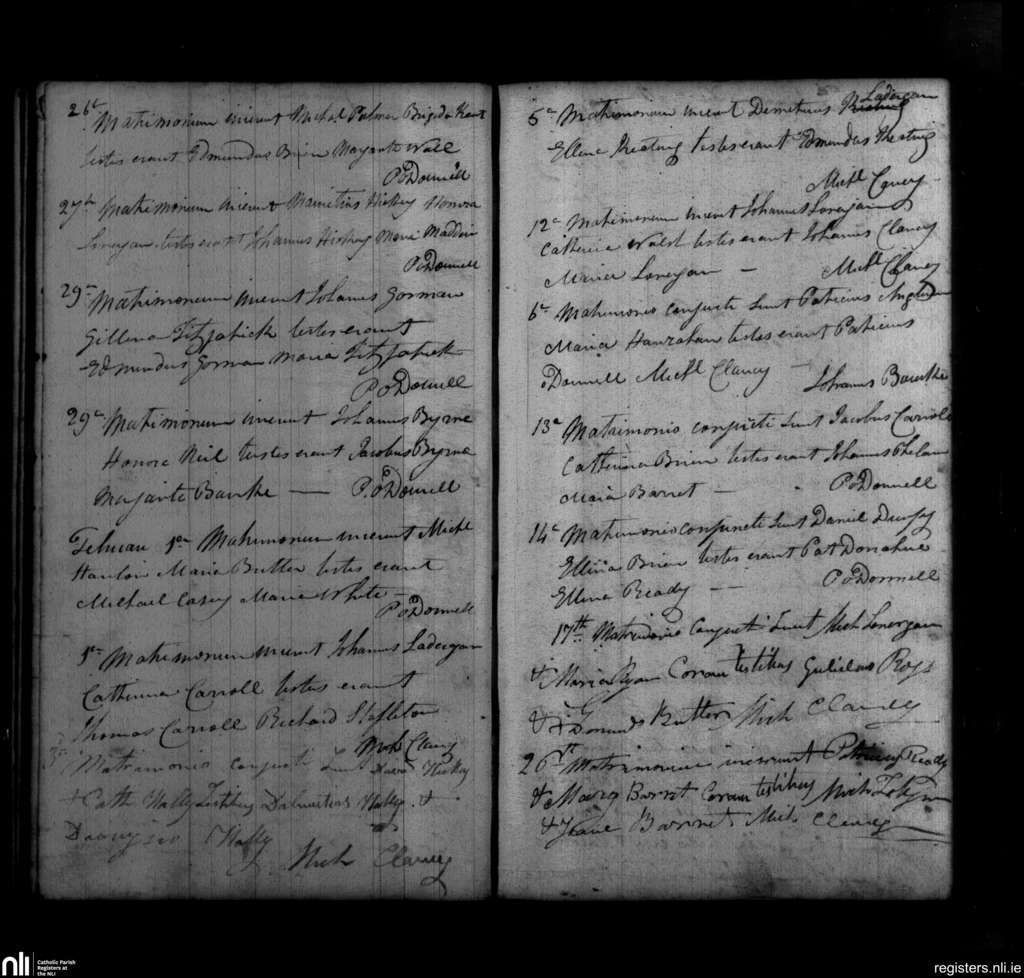 26ᵗ Matrimonium inierunt Michal Palmer Brigida Kent
testes erant Edmundus Brien Margarite Wall
P oDonnell
27th Matrimonium inierunt Mauritius Hickey Honora
Lonergan testes erant Johannes Hickey Maria Madden
P oDonnell
29ᵃ Matrimonium inierunt Johannes Gorman
Fitzpatrick testes erant
Edmundus Gorman Maria Fitzpatrick
P oDonnell
29ᵃ Matrimonium inierunt Johannes Byrne
Honora Neil testes erant Jacobus Byrne
Margarite Bourke — P. oDonnell
1ᵃ Matrimonium inierunt Michl
Hanlon Maria Butler testes erant
Michael Casey Maria White —
P oDonnell
1ᵃ Matrimonium inierunt Johannes Ladrigan
Catherina Carroll testes erant
Thomas Carroll Richard Stapleton
Mich Clancy
Matrimonio conjuncti sunt David Hickey
& Cath Hally &
Hally
Mich Clancy
5ᵃ Matrimonium inierunt Demetrius Ladrigan
Ellene Keating testes erant Edmundus Keating
Michl Clancy
12ᵃ Matrimonium inierunt Johannes Lonergan
Catherine Walsh testes erant Johannes Clancy
Maria Lonergan — Michl Clancy
6ᵃ Matrimonio conjuncti sunt Patricius
Maria Hanrahan testes erant Paticius
oDonnell Michl Clancy —
Johannes Bourke
13ᵃ Matrimonio conjuncti sunt Jacobus Carroll
Catherina Brien testes erant Johannes Phelan
Maria Barret — P oDonnell
14ᵃ Matrimonio conjuncti sunt Daniel
Ellina Brien testes erant Pat Donahue
Ellina Ready — P oDonnell
17th Matrimonio conjuncti sunt Mich Lonergan
& Maria Ryan Coram testibus Gulielmo
& Butler Mich Clancy
26th Matrimonium inierunt Ready
& Mary Barret Coram testibus Mich
& Jane Barret Mich Clancy
nli
Catholic Parish
Registers at
the NLI
registers.nli.ie